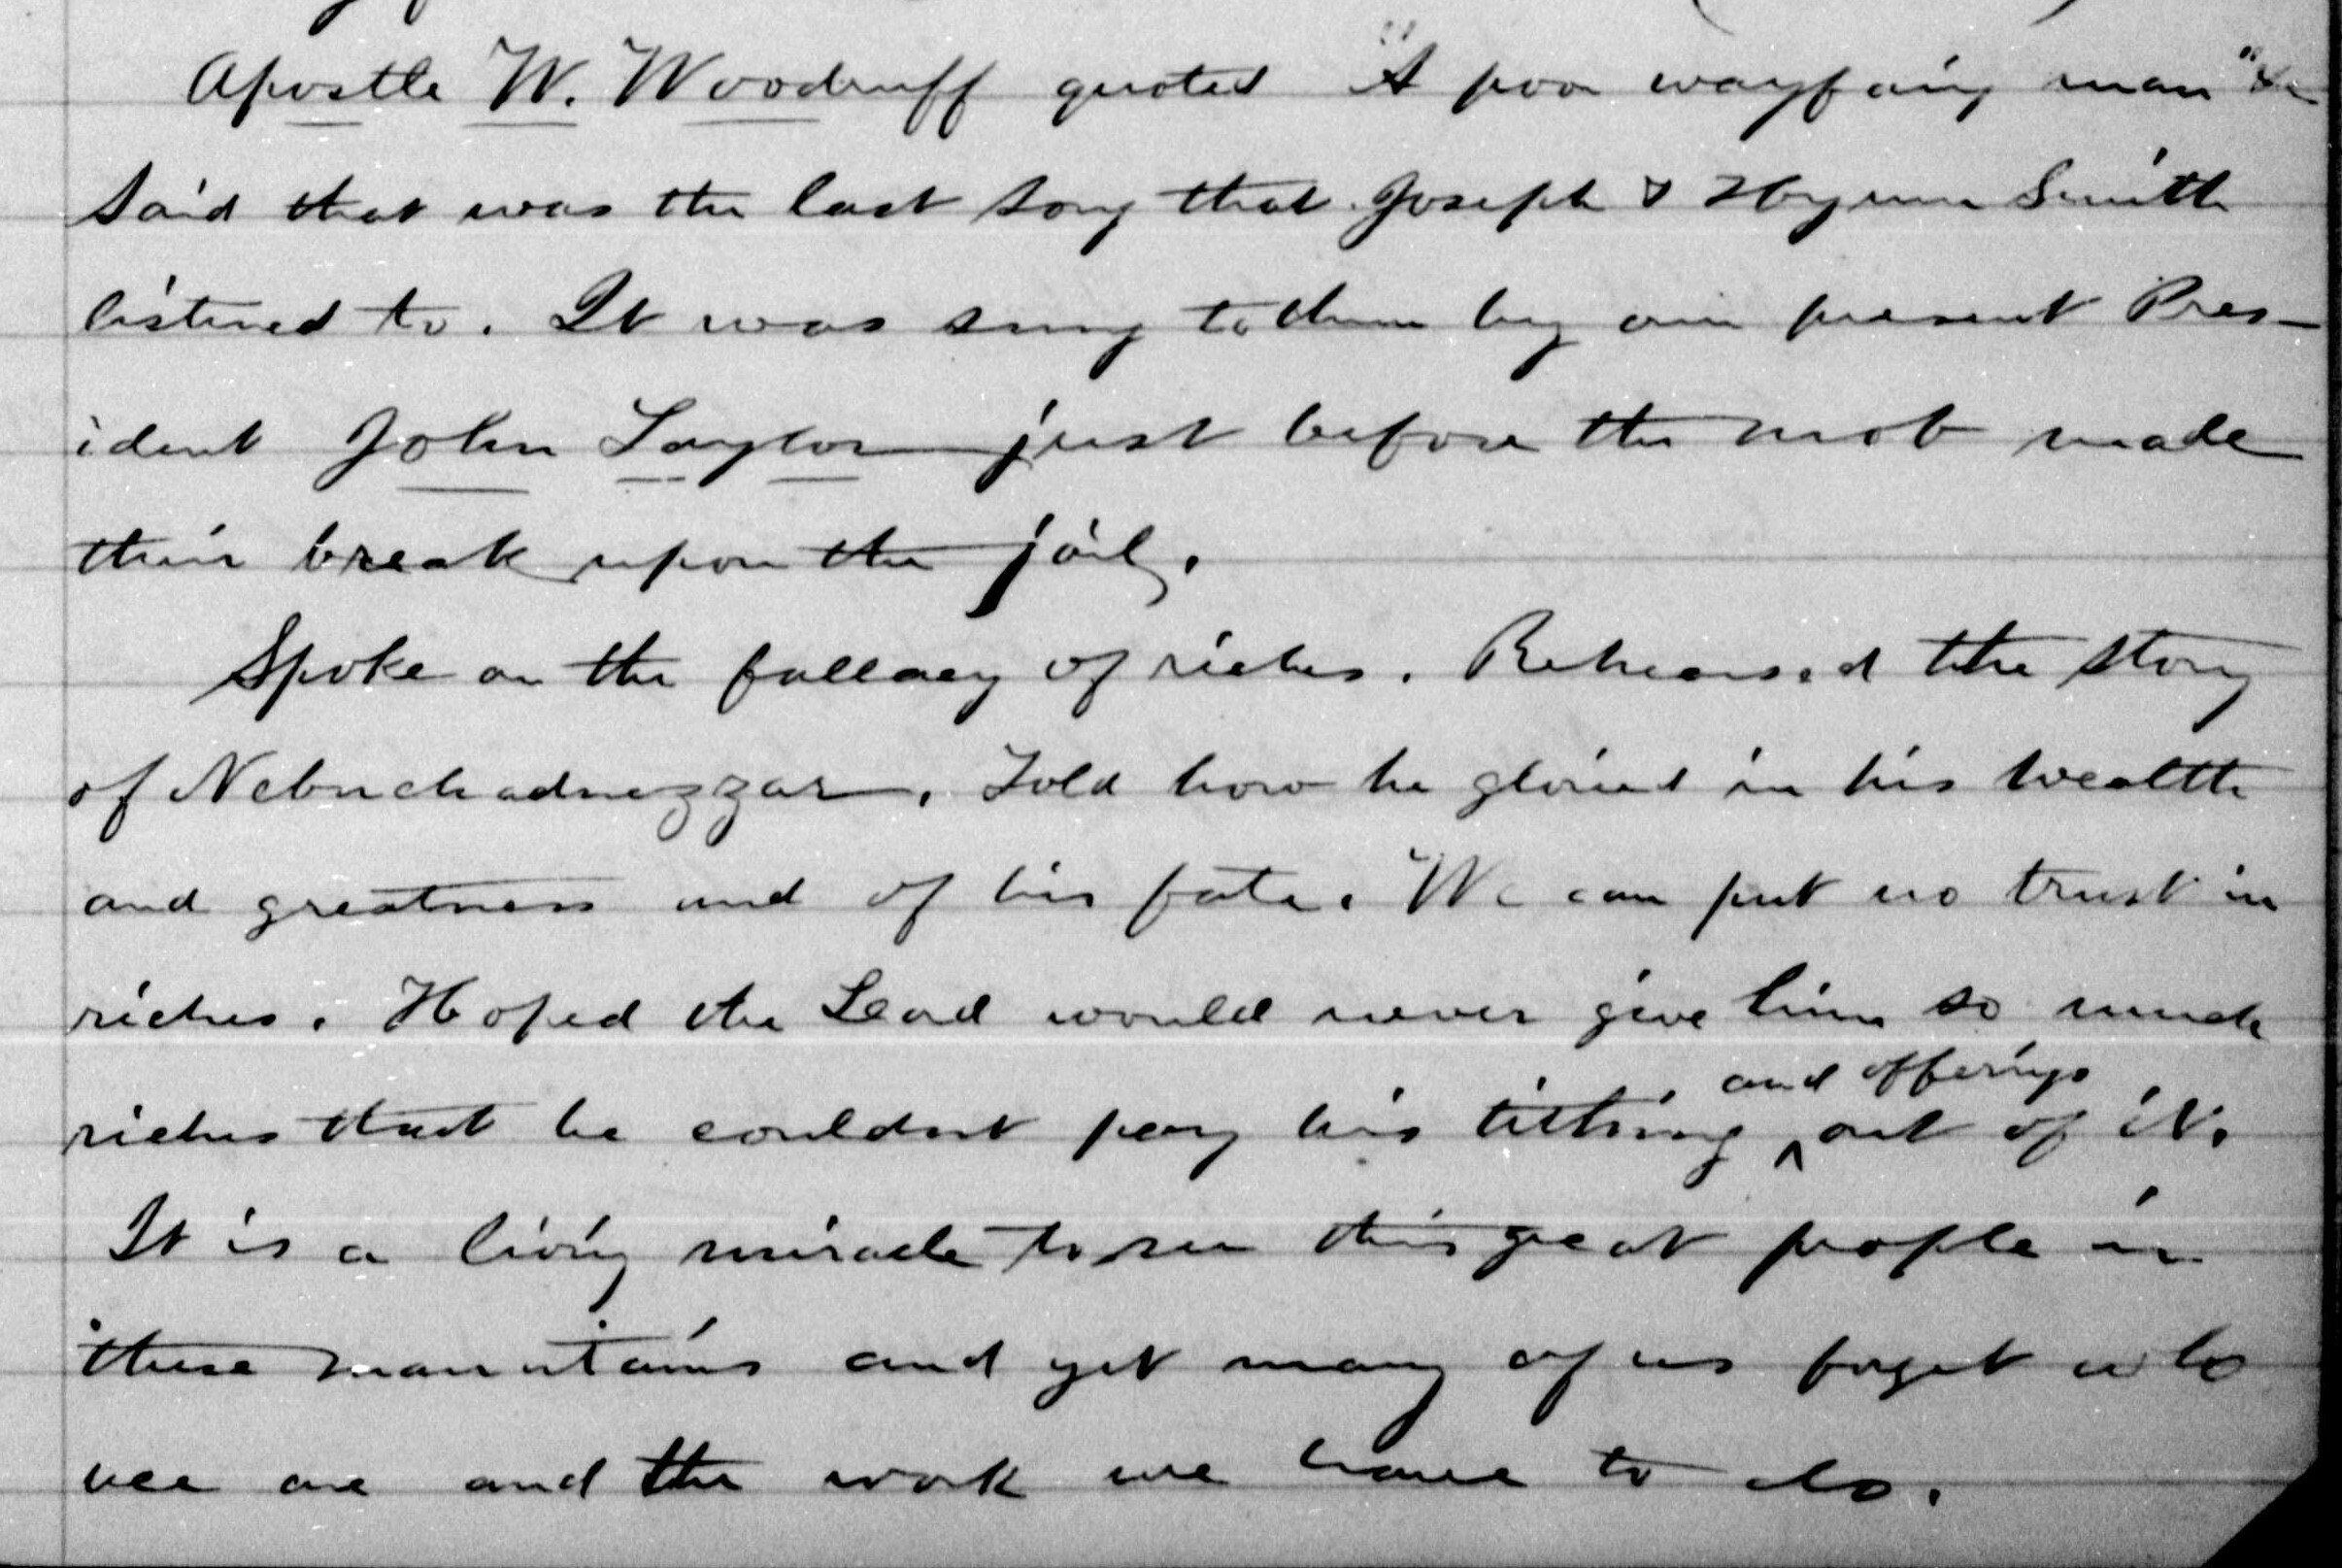 Apostle W. Woodruff quoted "A poor wayfaring man" &c
Said that was the last song that Joseph & Hyrum Smith
listened to. It was sung to them by our present Pres-
ident John Taylor just before the mob made
their break upon the jail.
Spoke on the fallacy of riches. Rehearsed the story
of Nebuchadnezzar. Told how he gloried in his wealth
and greatness and of his fate. We can put no trust in
riches. Hoped the Lord would never give him so much
and offerings
riches that he couldnt pay his tithing ^ out of it.
It is a living miracle to see this great people in
these mountains and yet many of us forget who
we are and the work we have to do.